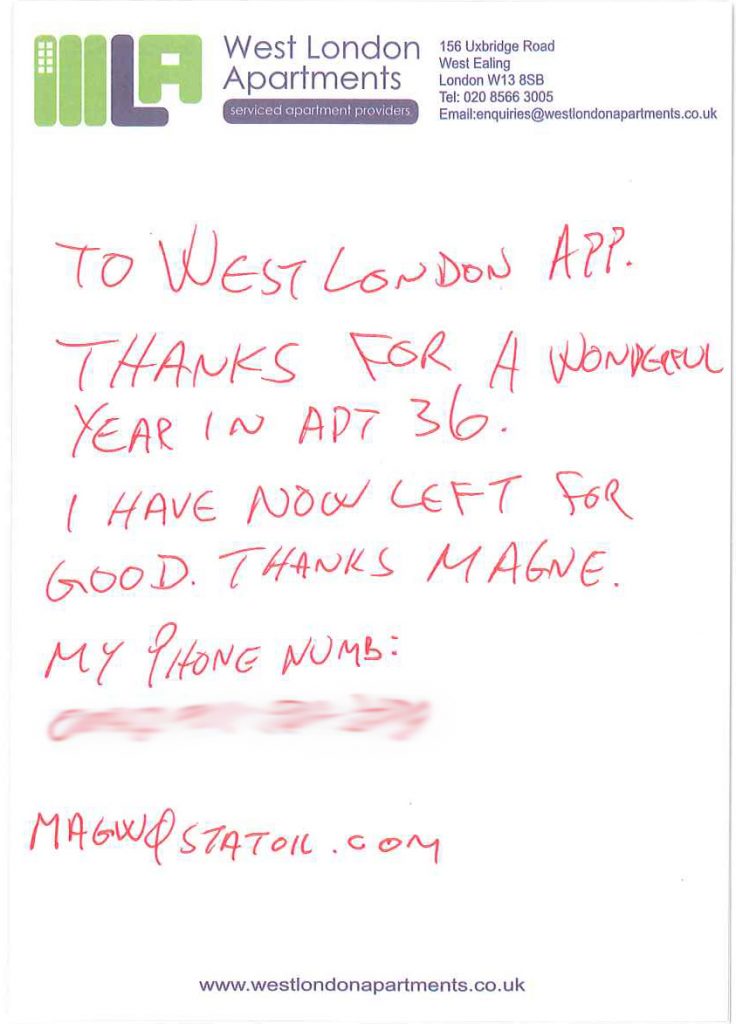 West London
Apartments
serviced apartment providers
156 Uxbridge Road
West Ealing
London W13 8SB
Tel: 020 8566 3005
Email:enquiries@westlondonapartments.co.uk
TO WEST LONDON APP.
THANKS FOR A WONDERFUL
YEAR IN APT 36.
I HAVE NOW LEFT FOR
GOOD. THANKS MAGNE.
MY PHONE NUMB:
MAGW@STATOIL.COM
www.westlondonapartments.co.uk